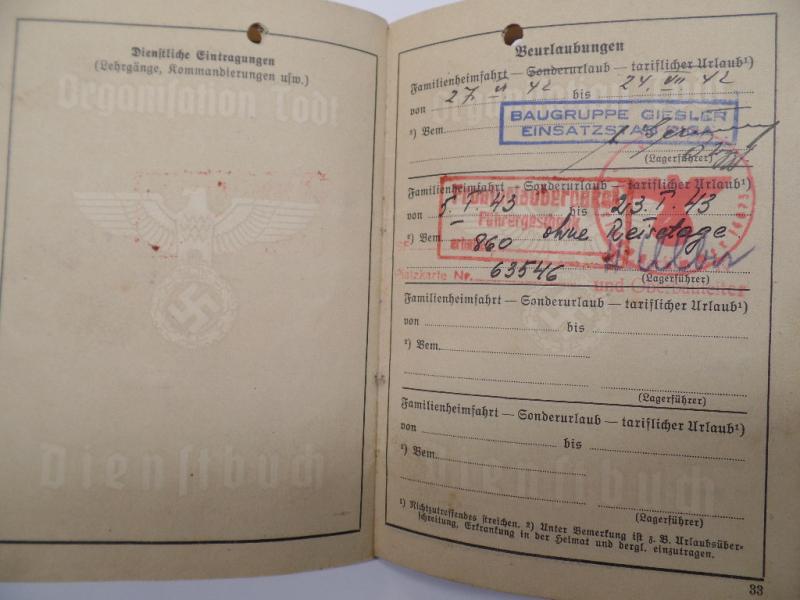 Dienstliche Eintragungen
(Lehrgänge, Kommandierungen usw.)
Organisation Todt
Dienstbuch
Beurlaubungen
Familienheimfahrt — Sonderurlaub — tariflicher Urlaub¹)
von 27. 42 bis 24. VII 42
BAUGRUPPE GIESLER
EINSATZSTAB RIGA
²) Bem.
(Lagerführer)
Familienheimfahrt — Sonderurlaub — tariflicher Urlaub¹)
von 5. I. 43 bis 23. I. 43
Führergeschenk
²) Bem. 860 ohne Reisetage
63546
(Lagerführer)
Platzkarte Nr.
und Oberbauleiter
Familienheimfahrt — Sonderurlaub — tariflicher Urlaub¹)
von bis
²) Bem.
(Lagerführer)
Familienheimfahrt — Sonderurlaub — tariflicher Urlaub¹)
von bis
²) Bem.
(Lagerführer)
¹) Nichtzutreffendes streichen. ²) Unter Bemerkung ist z. B. Urlaubsüber-
schreitung, Erkrankung in der Heimat und dergl. einzutragen.
33